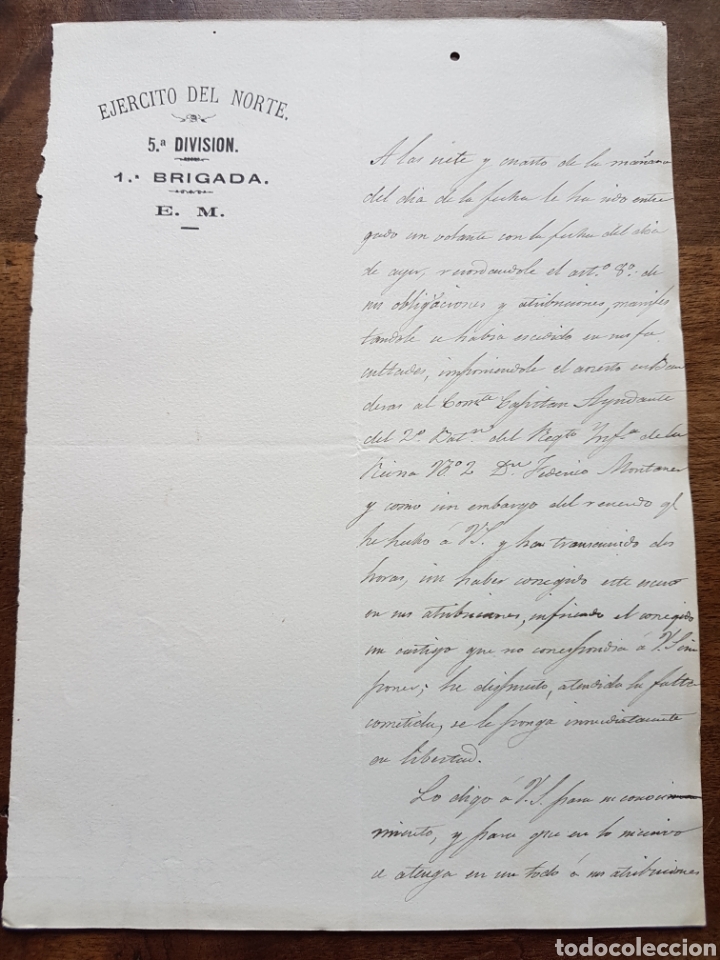 EJERCITO DEL NORTE.
5.ª DIVISION.
1.ª BRIGADA.
E. M.
A las siete y cuarto de la mañana
del dia de la fecha le ha sido entre
gado un volante con la fecha del dia
de ayer, recordandole el art.º 8.º de
sus obligaciones y atribuciones, manifes
tandole se habia escedido en sus fa
cultades, imponiendole el arresto en Ban
deras al Com.te Capitan Ayudante
del 2.º Bat.n del Regto Ynf.a de la
Reina Nº 2 Dn Federico Montaner
y como sin embargo del recuerdo qe
he hecho á V.S. y han transcurrido dos
horas, sin haber corregido este esceso
en sus atribuciones, infiriendo el corregido
un castigo que no correspondia á V.S. im
poner; he dispuesto, atendida la falta
cometida, se le ponga inmediatamente
en libertad.
Lo digo á V.S. para su conoci
miento, y para que en lo sucesivo
se atenga en un todo á sus atribuciones
todocoleccion